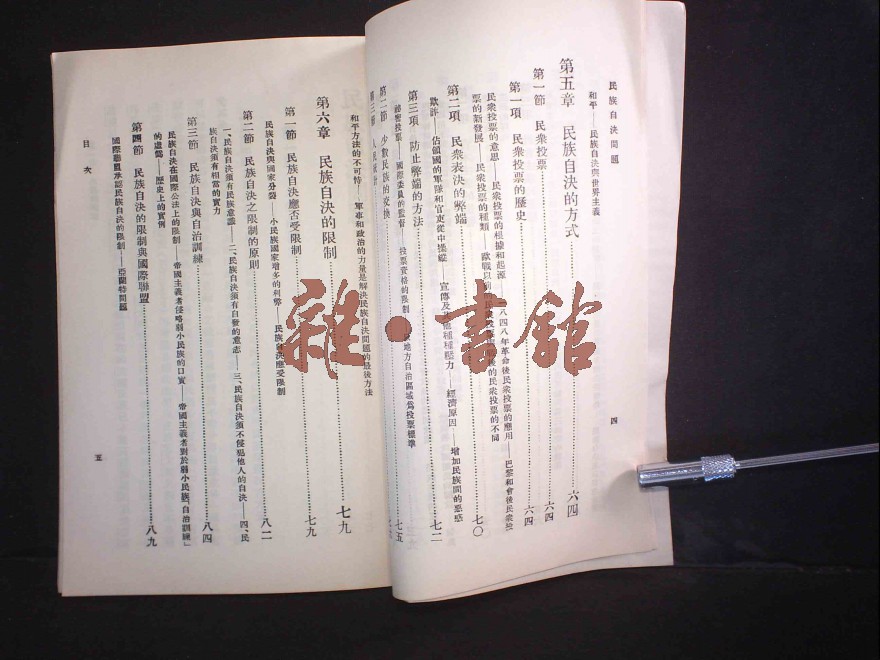 民族自決問題
四
和平——民族自決與世界主義
第五章　民族自決的方式……六四
第一節　民衆投票……六四
第一項　民衆投票的歷史……六四
民衆投票的意思——民衆投票的根據和起源
八四八年革命後民衆投票的應用——巴黎和會後民衆投
票的新發展——民衆投票的種類——歐戰以前
民衆投票
的民衆投票的不同……七〇
第二項　民衆表決的弊端……七二
欺詐——佔領國的軍隊和官吏從中操縱——宣傳及
種種壓力——經濟原因——增加民族間的惡感
第三項　防止弊端的方法……七五
祕密投票——國際委員的監督——投票資格的限制
地方自治區域爲投票標準
第二節　少數民族的交換
和平方法的不可恃——軍事和政治的力量是解決民族自決問題的最後方法
第六章　民族自決的限制……七九
第一節　民族自決應否受限制……七九
民族自決與國家分裂——小民族國家增多的利弊——民族自決應受限制
第二節　民族自決之限制的原則……八二
一、民族自決須有民族意識——二、民族自決須有自發的意志——三、民族自決須不侵犯他人的自決——四、民
族自決須有相當的實力
第三節　民族自決與自治訓練……八四
民族自決在國際公法上的限制——帝國主義者侵略弱小民族的口實——帝國主義者對於弱小民族「自治訓練」
的虛僞——歷史上的實例
第四節　民族自決的限制與國際聯盟……八九
國際聯盟承認民族自決的限制——亞蘭特問題
目次
五
雜·書館